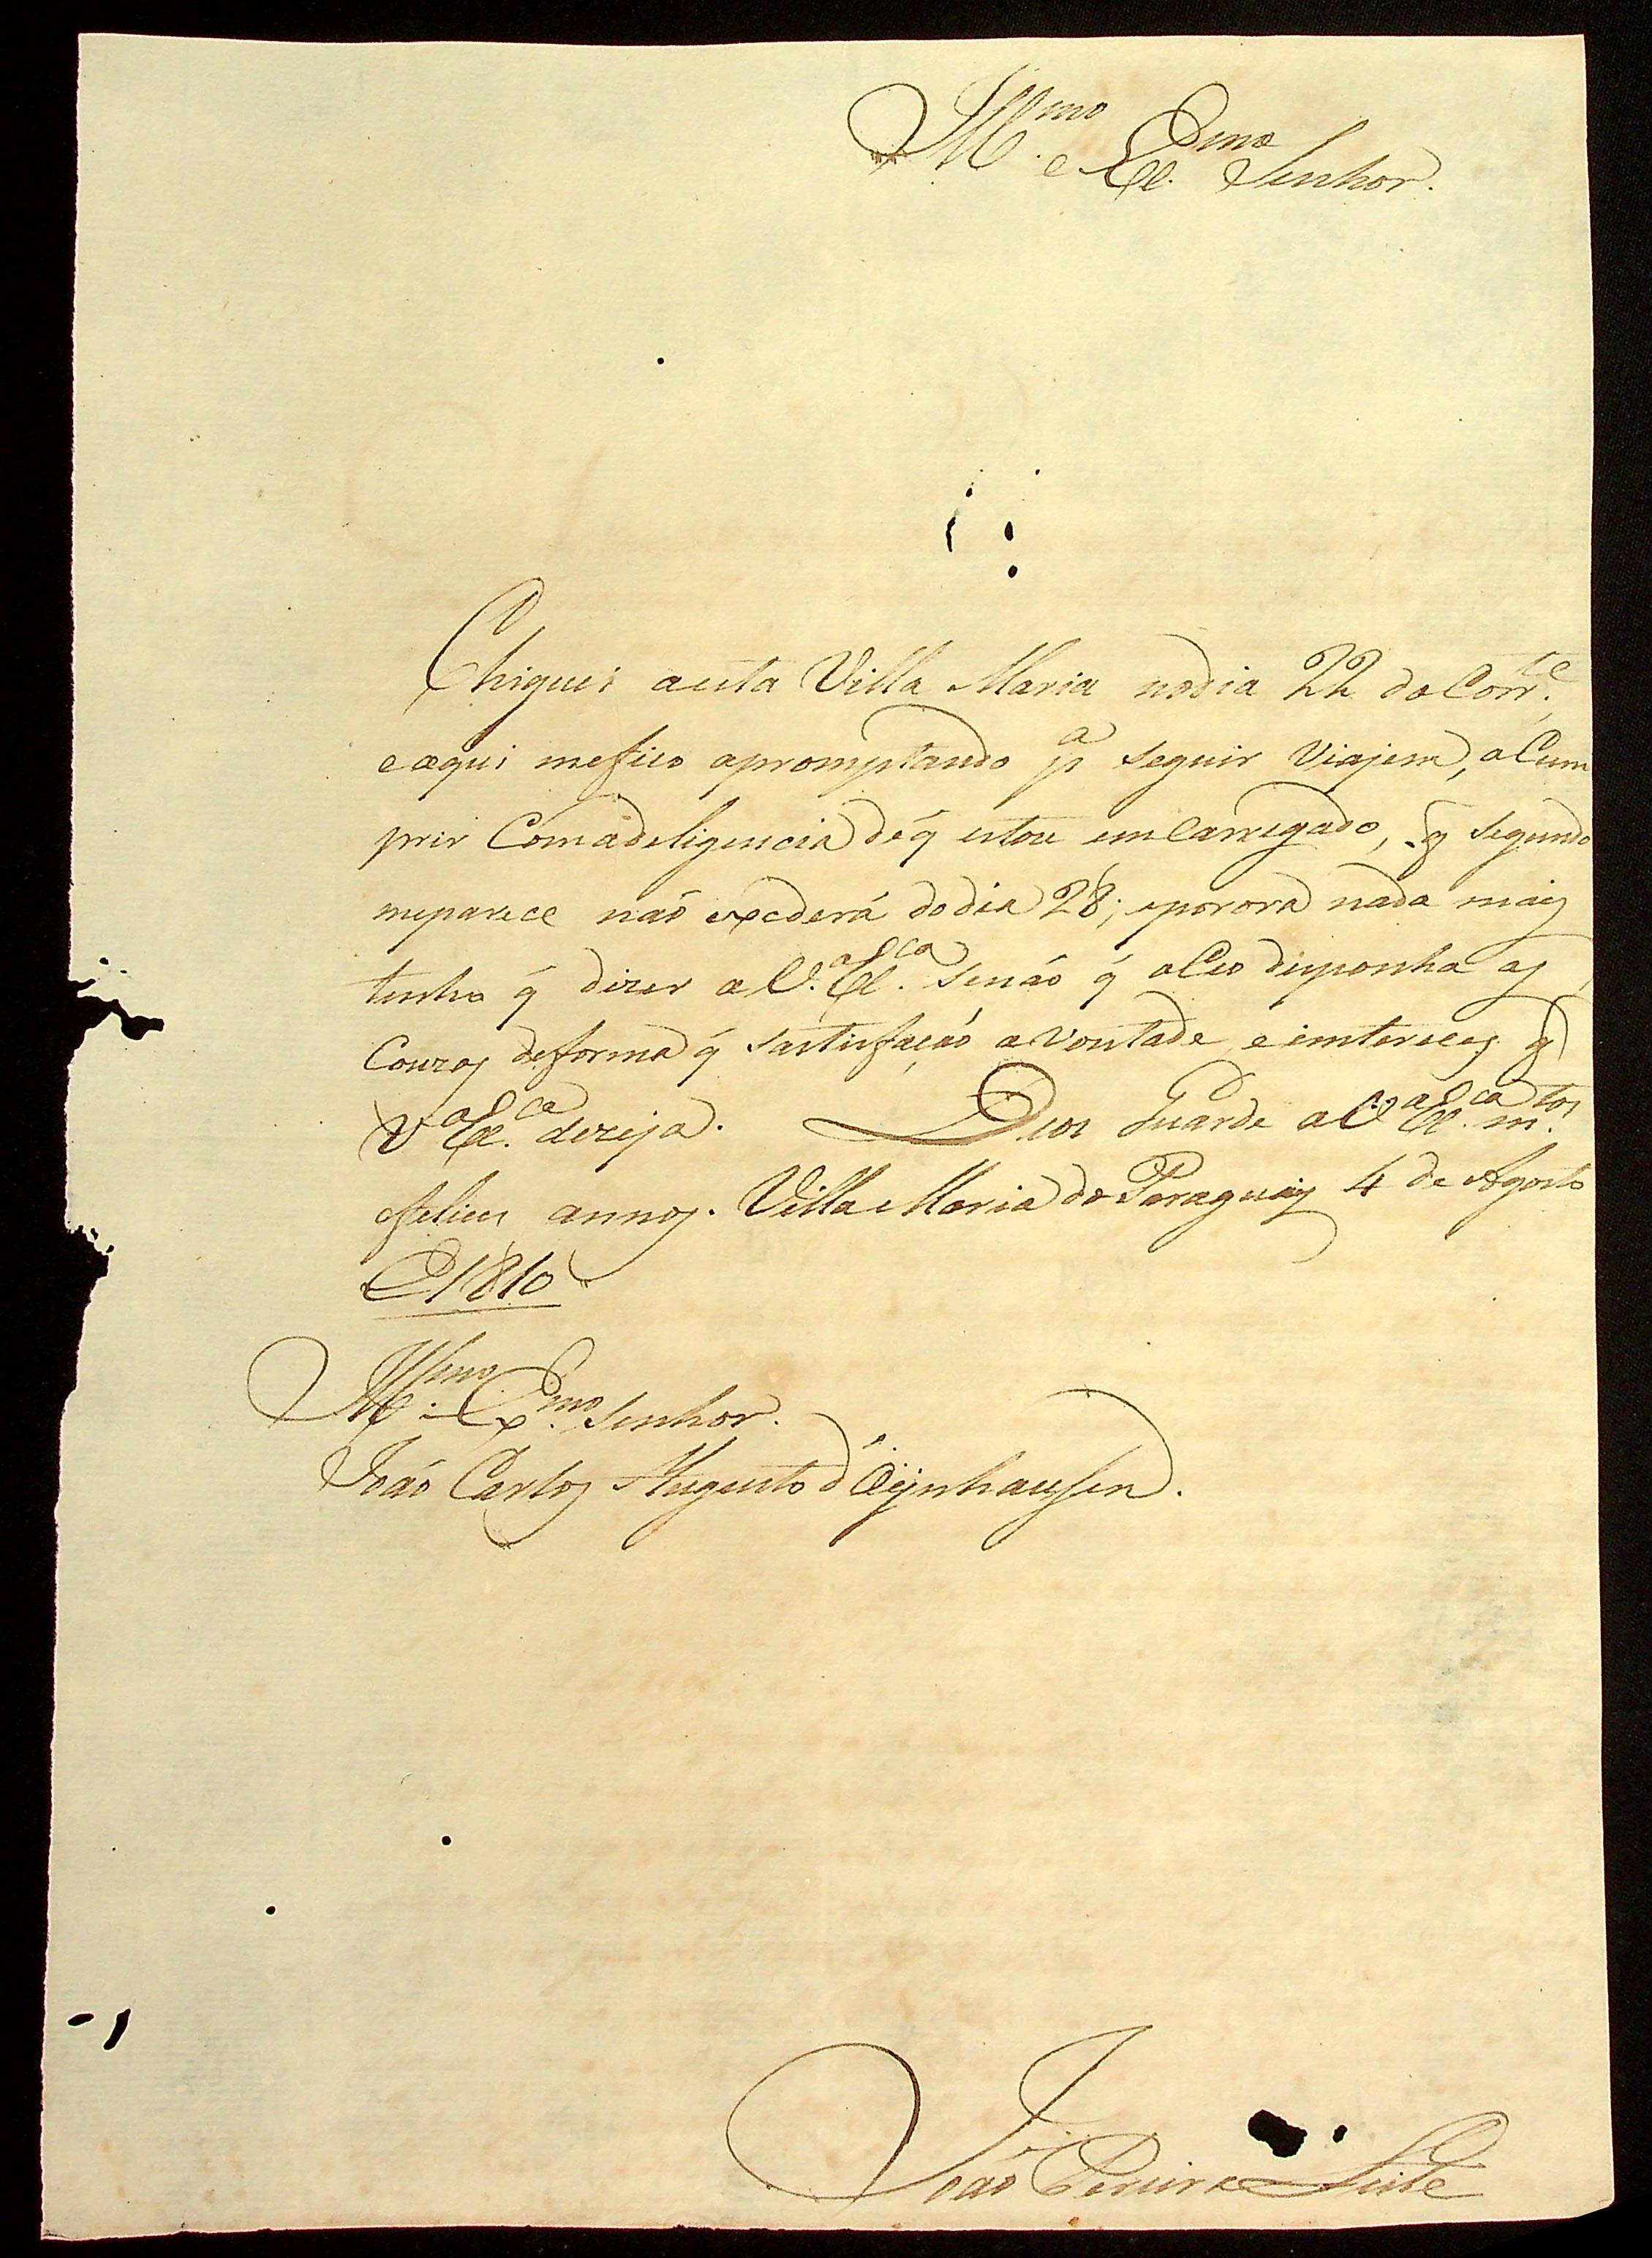 Ill.mo e Ex.mo Senhor.
Chiguei a esta Villa Maria no dia 22 do Corr.te
e aqui me fico apromptando p.a seguir Viajem, a Cum
prir Com a deligencia de q̃ estou em Carregado, q̃ segundo
me parece não excederá do dia 28; e por ora nada mais
tenho q̃ dizer a V.a Ex.ca senão q̃ o Ceo disponha as
Couzas de forma q̃ sastisfação a vontade e intereces q̃
V.a Ex.ca dezeja. Deos Guarde a V.a Ex.ca m.tos
felices annos. Villa Maria do Paraguay 4 de Agosto
de 1810
Ill.mo Ex.mo Senhor.
João Carlos Augusto d'Oeynhausen.
João Pereira Leite